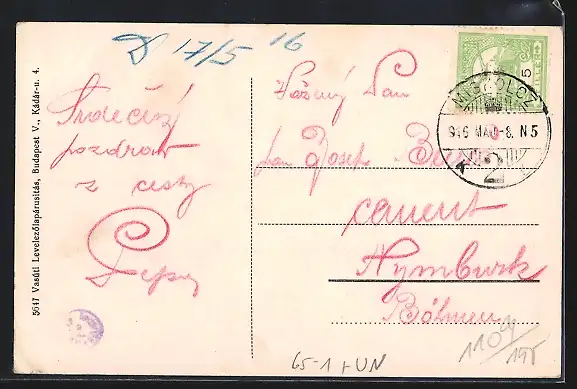 D 17/5 16
Srdečný
pozdrav
z cesty
Pepa
Vážený Pan
pan Josef
cement
Nymburk
Böhmen
5
MISKOLCZ
916 MAJ -8. N5
2
5647 Vasúti Levelezőlapárusitás, Budapest V., Kádár-u. 4.
65-1+UN
1104
195